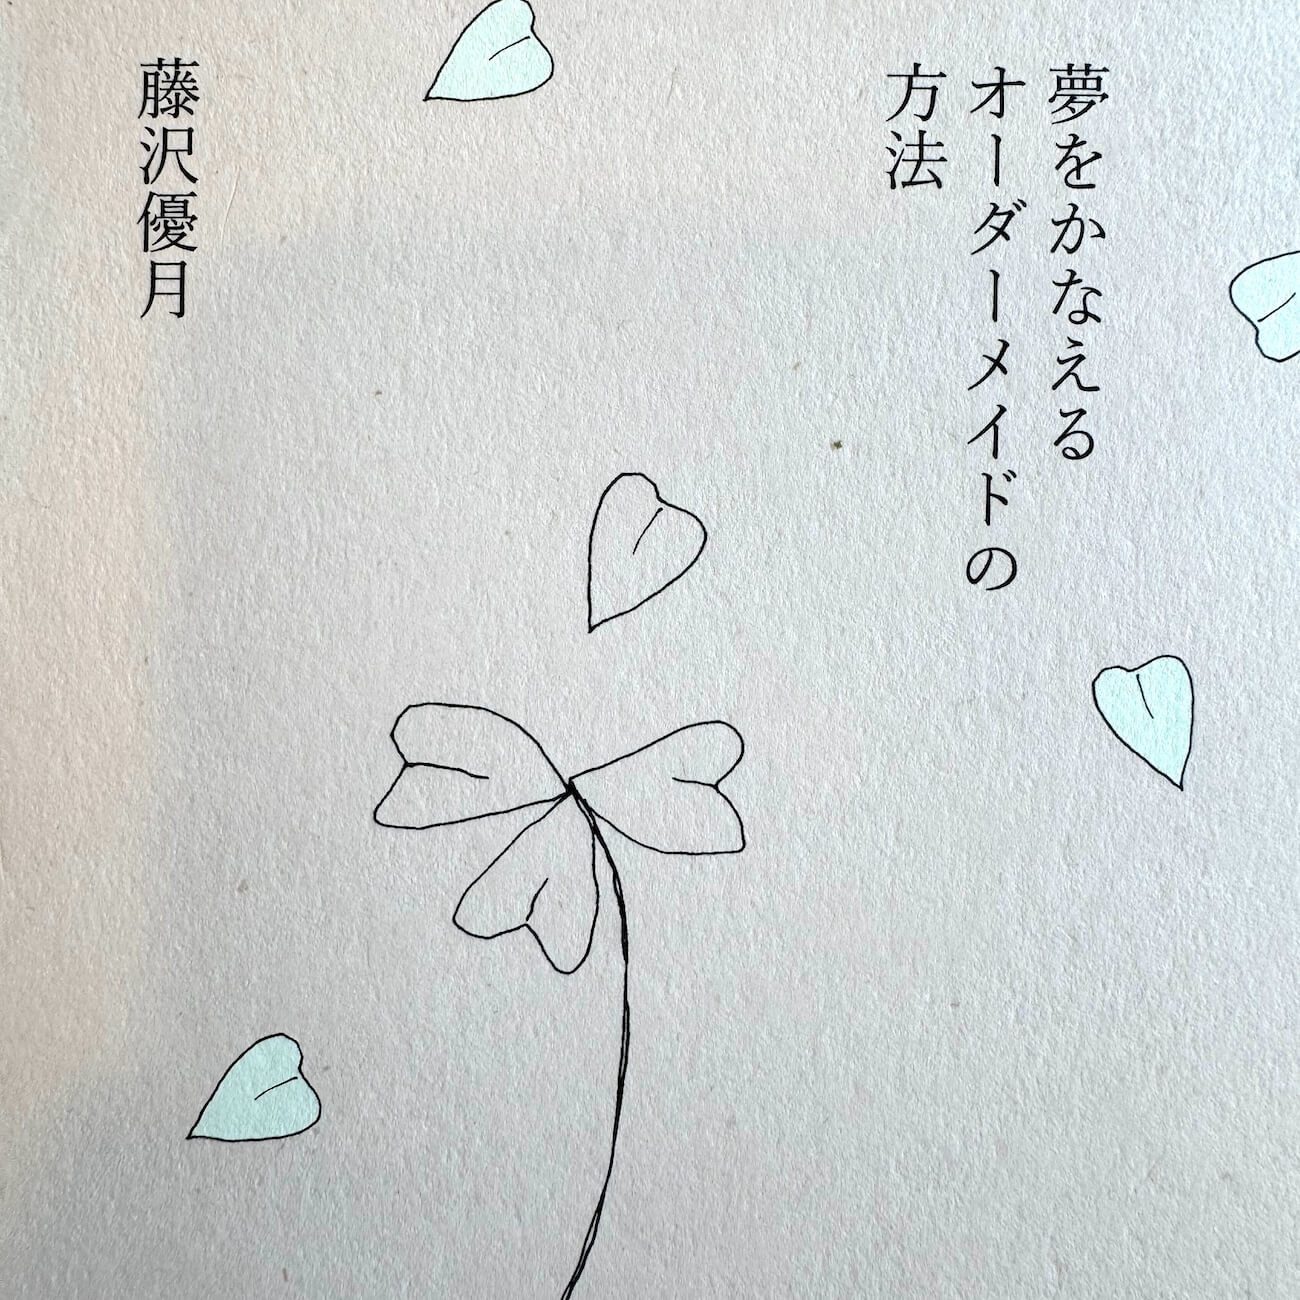 夢をかなえる
オーダーメイドの
方法
藤沢優月